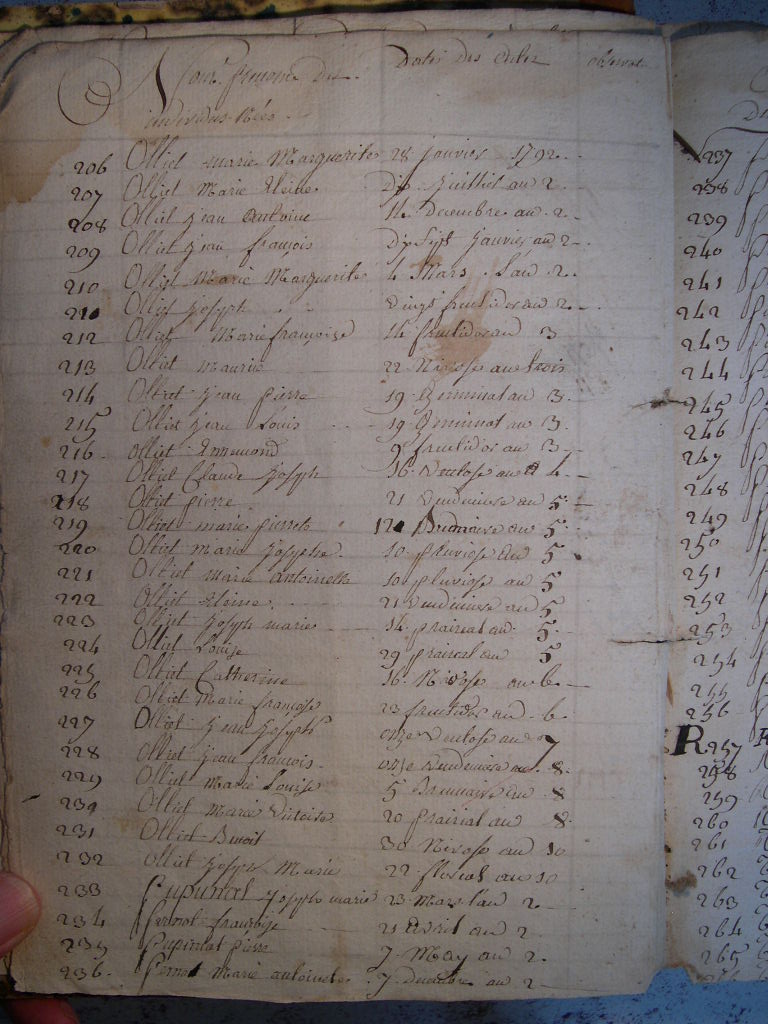 Nom & prenoms des Dates des Actes observat
individus Nés
206 Olliet marie Marguerite 28 janvier 1792
207 Olliet Marie Heleine Dix juilliet au 2
208 Olliet jean Antoine 14 Decembre au 2
209 Olliet jean françois Dix sept janvier au 2
210 Olliet Marie Marguerite 4 Mars l'an 2
211 Olliet joseph vingt fructidor an 2
212 Olliet Marie françoise 14 fructidor an 3
213 Olliet Maurice 22 Nivose an trois
214 Olliet jean pierre 19 Germinal an 3
215 Olliet jean Louis 19 Germinal an 3
216 olliet Ennemond 9 fructidor an 3
217 Olliet Claude joseph 16 Ventose an 4
218 Olliet pierre 21 vendemiere an 5
219 Olliet marie pierrete 12 Brumaire an 5
220 Olliet Marie josephte 10 pluviose an 5
221 Olliet Marie Antoinette 10 pluviose an 5
222 Olliet Heleine 21 vendemiere an 5
223 Olliet joseph marie 14 prairial an 5
224 Olliet Louise 29 prairial an 5
225 Olliet Catherine 16 Nivose an 6
226 Olliet Marie françoise 23 fructidor an 6
227 Olliet jean joseph onze ventose an 7
228 Olliet jean françois onze vendemiere an 8
229 Olliet Marie Louise 5 Brumaire an 8
230 Olliet Marie Victoire 20 prairial an 8
231 Olliet Benoit 30 Nivose an 10
232 Olliet joseph Marie 22 floreal an 10
233 Pupunat joseph marie 23 Mars l'an 2
234 Pernot françoise 21 Avril an 2
235 Pupinat pierre 7 May an 2
236 Pernot Marie antoinete 7 Decembre an 2
237
238
239
240
241
242
243
244
245
246
247
248
249
250
251
252
253
254
255
256
R 257
258
259
260
261
262
263
264
265